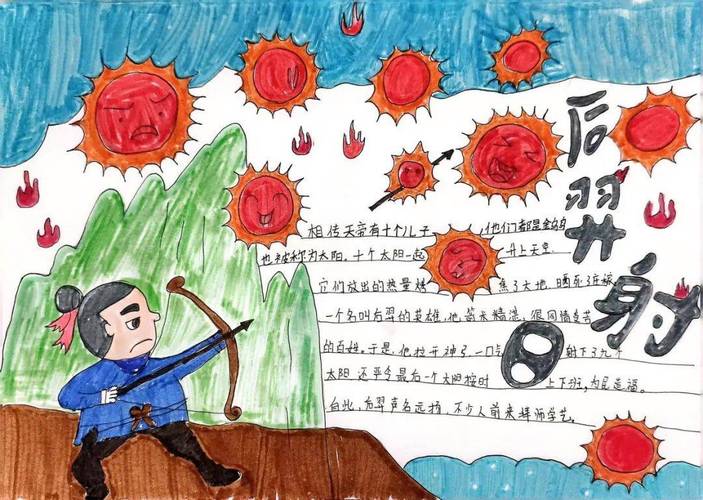 后羿射日
相传天帝有十个儿子,他们都是金乌
也被称为太阳。十个太阳一起升上天空
它们放出的热量烤焦了大地,晒死庄稼
一个名叫后羿的英雄,他箭术精湛,很同情受苦
的百姓。于是,他拉开神弓一口气射下了九个
太阳,还严令最后一个太阳按时上下班,为民造福。
自此,后羿声名远扬,不少人前来拜师学艺。